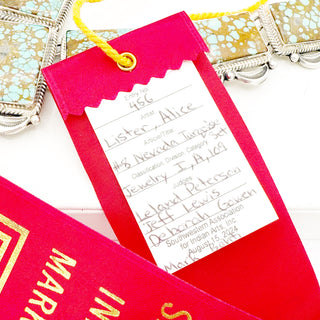 Entry No.
456
Artist
Lister, Alice
Artwork/Title
#8 Nevada Turquoise Set
Classification, Division, Category
Jewelry I, A, 109
Judges
Leland Peterson
Jeff Lewis
Deborah Gowen
Southwestern Association
for Indian Arts, Inc
August 15, 2024
S
IN
MAR